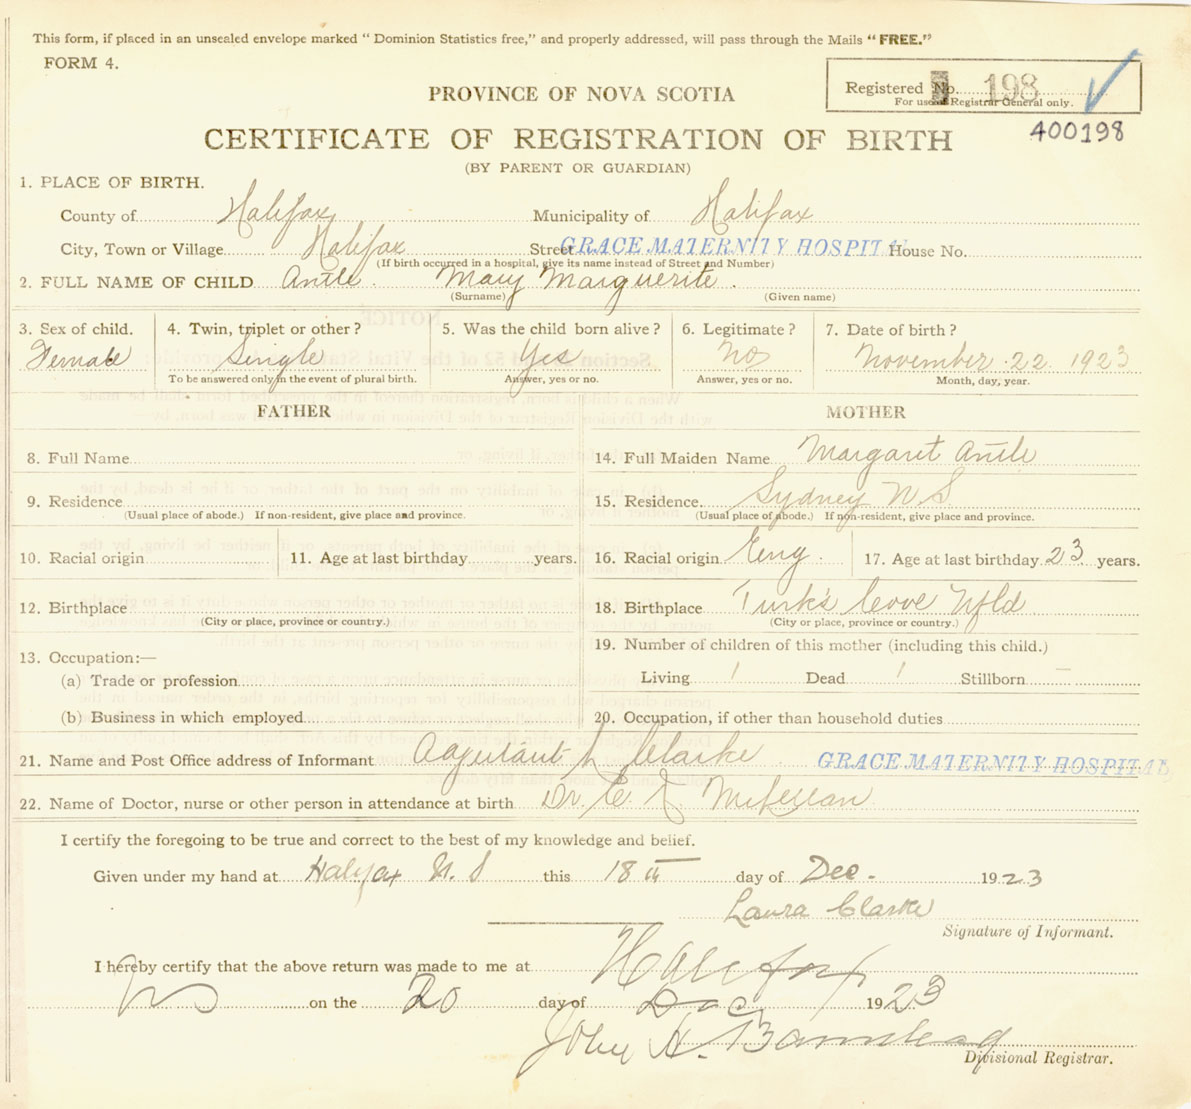 This form, if placed in an unsealed envelope marked “ Dominion Statistics free,” and properly addressed, will pass through the Mails “ FREE.”
FORM 4.
Registered No. 198
For use of Registrar General only.
400198
PROVINCE OF NOVA SCOTIA
CERTIFICATE OF REGISTRATION OF BIRTH
(BY PARENT OR GUARDIAN)
1. PLACE OF BIRTH.
County of Halifax Municipality of Halifax
City, Town or Village Halifax Street GRACE MATERNITY HOSPITAL House No.
(If birth occurred in a hospital, give its name instead of Street and Number)
2. FULL NAME OF CHILD Antle. Mary Marguerite.
(Surname) (Given name)
3. Sex of child. 4. Twin, triplet or other ? 5. Was the child born alive ? 6. Legitimate ? 7. Date of birth ?
Female Single Yes No November 22 1923
To be answered only in the event of plural birth. Answer, yes or no. Answer, yes or no. Month, day, year.
FATHER MOTHER
8. Full Name 14. Full Maiden Name Margaret Antle
9. Residence 15. Residence. Sydney N S
(Usual place of abode.) If non-resident, give place and province. (Usual place of abode.) If non-resident, give place and province.
10. Racial origin 11. Age at last birthday years. 16. Racial origin Eng. 17. Age at last birthday 23 years.
12. Birthplace 18. Birthplace Turk's Cove Nfld
(City or place, province or country.) (City or place, province or country.)
13. Occupation:— 19. Number of children of this mother (including this child.)
(a) Trade or profession Living 1 Dead 1 Stillborn —
(b) Business in which employed 20. Occupation, if other than household duties
21. Name and Post Office address of Informant Adjutant L Clarke GRACE MATERNITY HOSPITAL,
22. Name of Doctor, nurse or other person in attendance at birth Dr.
I certify the foregoing to be true and correct to the best of my knowledge and belief.
Given under my hand at Halifax N. S this 18th day of Dec. 1923
Laura Clarke
Signature of Informant.
I hereby certify that the above return was made to me at Halifax
on the 20 day of Dec 1923
John A.
Divisional Registrar.